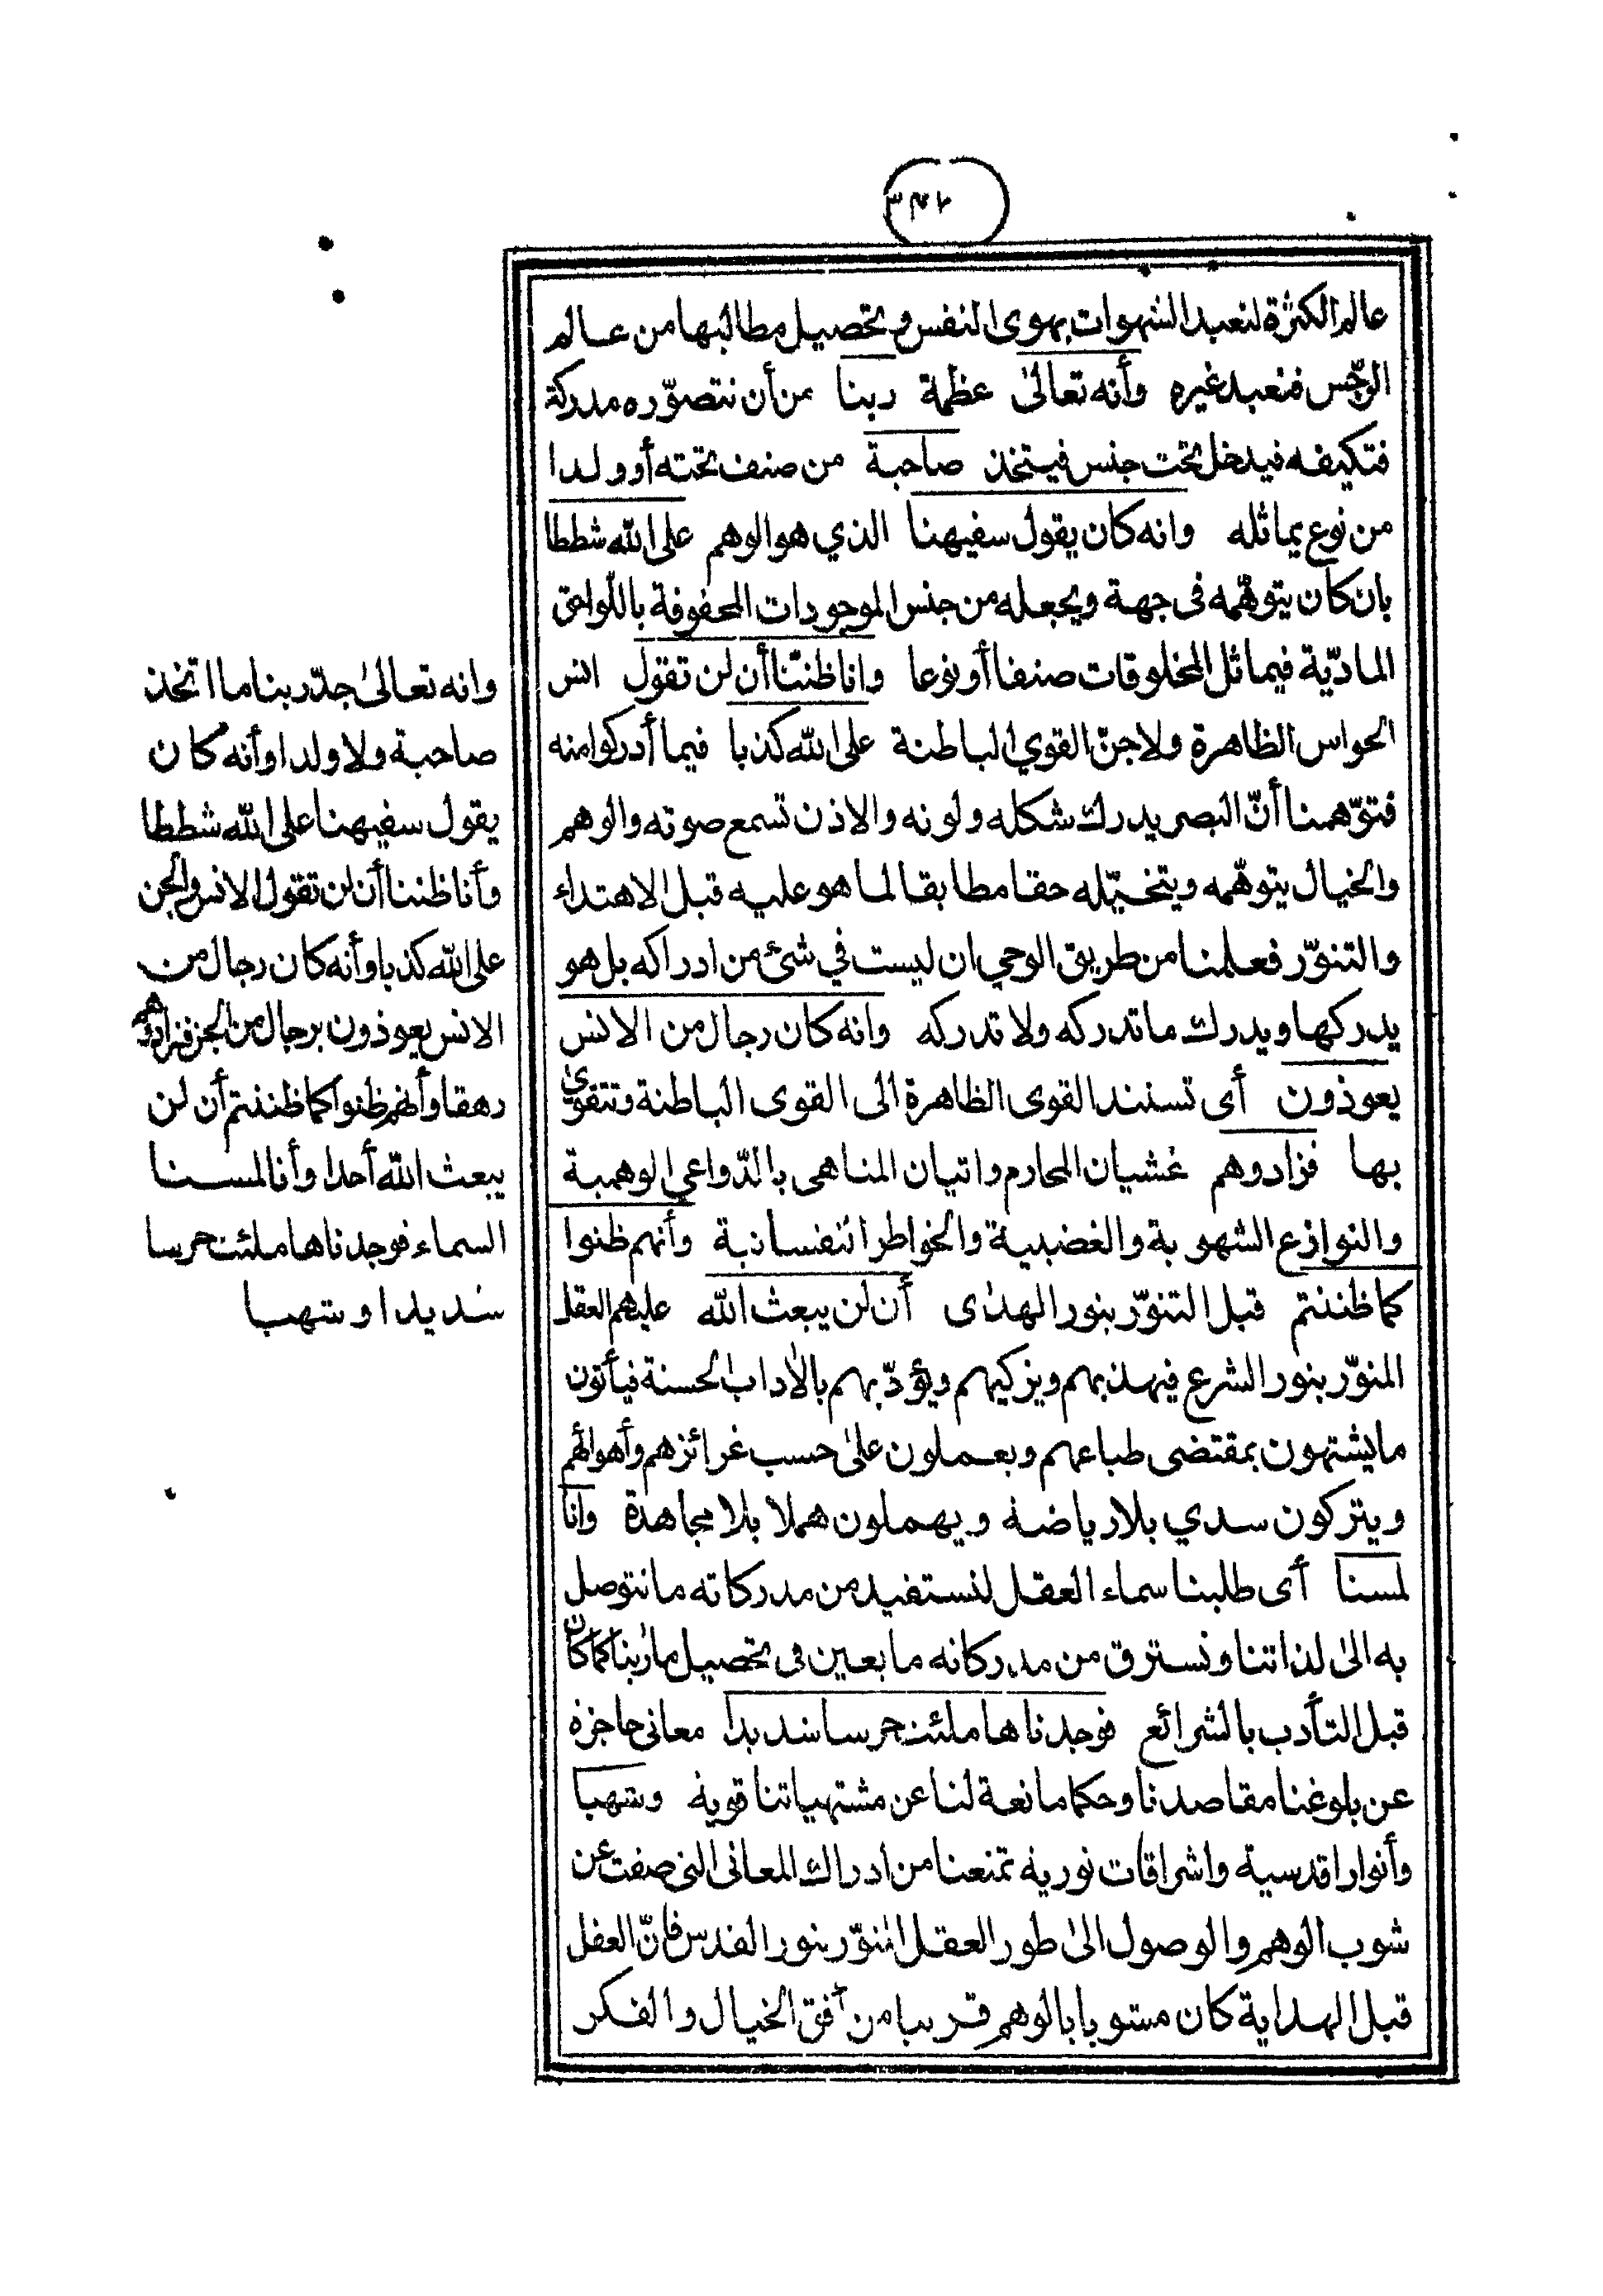 ٣٤٢
عالم الكثرة لنعبد الشهوات بهوى النفس وتحصيل مطالبها من عالم
الرجس فنعبد غيره وأنه تعالىٰ عظمة ربنا من أن نتصوّره مدركة
فتكيفه فيدخل تحت جنس فيتخذ صاحبة من صنف تحته أو ولدا
من نوع يماثله وانه كان يقول سفيهنا الذي هو الوهم على الله شططا
بان كان يتوهّمه فى جهة ويجعله من جنس الموجودات المحفوفة باللّواحق
المادّية فيماثل المخلوقات صنفا أو نوعا وانا ظننّا أن لن تقول انس
الحواس الظاهرة ولا جنّ القوي الباطنة على الله كذبا فيما أدركوا منه
فتوّهمنا أنّ البصر يدرك شكله ولونه والاذن تسمع صوته والوهم
والخيال يتوهّمه ويتخيّله حقا مطابقا لما هو عليه قبل الاهتداء
والتنوّر فعلمنا من طريق الوحي ان ليست في شئ من ادراكه بل هو
يدركها ويدرك ما تدركه ولا تدركه وانه كان رجال من الانس
يعوذون أى تستند القوى الظاهرة الى القوى الباطنة وتتقوىٰ
بها فزادوهم غشيان المحارم واتيان المناهى بالدّواعي الوهمية
والنوازع الشهوية والغضبية والخواطر النفسانية وأنهم ظنوا
كما ظننتم قبل التنوّر بنور الهدٰى أن لن يبعث الله عليهم العقل
المنوّر بنور الشرع فيهذبهم ويزكيهم ويؤدّبهم بالاٰداب الحسنة فيأتون
ما يشتهون بمقتضى طباعهم ويعملون علىٰ حسب غرائزهم وأهوائهم
ويتركون سدي بلا رياضة ويهملون هملا بلا مجاهدة وانا
لمسنا أى طلبنا سماء العقل لنستفيد من مدركاته ما نتوصل
به الىٰ لذاتنا ونسترق من مدركاته ما يعين فى تحصيل ماٰربنا كما كان
قبل التأدب بالشرائع فوجدناها ملئت حرسا شديدا معانى حاجزة
عن بلوغنا مقاصدنا وحكما مانعة لنا عن مشتهياتنا قوية وشهبا
وأنوارا قدسية واشراقات نورية تمنعنا من ادراك المعانى التى صفت عن
شوب الوهم والوصول الىٰ طور العقل المنوّر بنور القدس فانّ العقل
قبل الهداية كان مشوبا بالوهم قريبا من أفق الخيال والفكر
وانه تعالىٰ جدّ ربنا ما اتخذ
صاحبة ولا ولدا وأنه كان
يقول سفيهنا على الله شططا
وأنا ظننا أن لن تقول الانس والجن
على الله كذبا وأنه كان رجال من
الانس يعوذون برجال من الجن فزادوهم
رهقا وأنهم ظنوا كما ظننتم أن لن
يبعث الله أحدا وأنا لمسنا
السماء فوجدناها ملئت حرسا
شديدا وشهبا